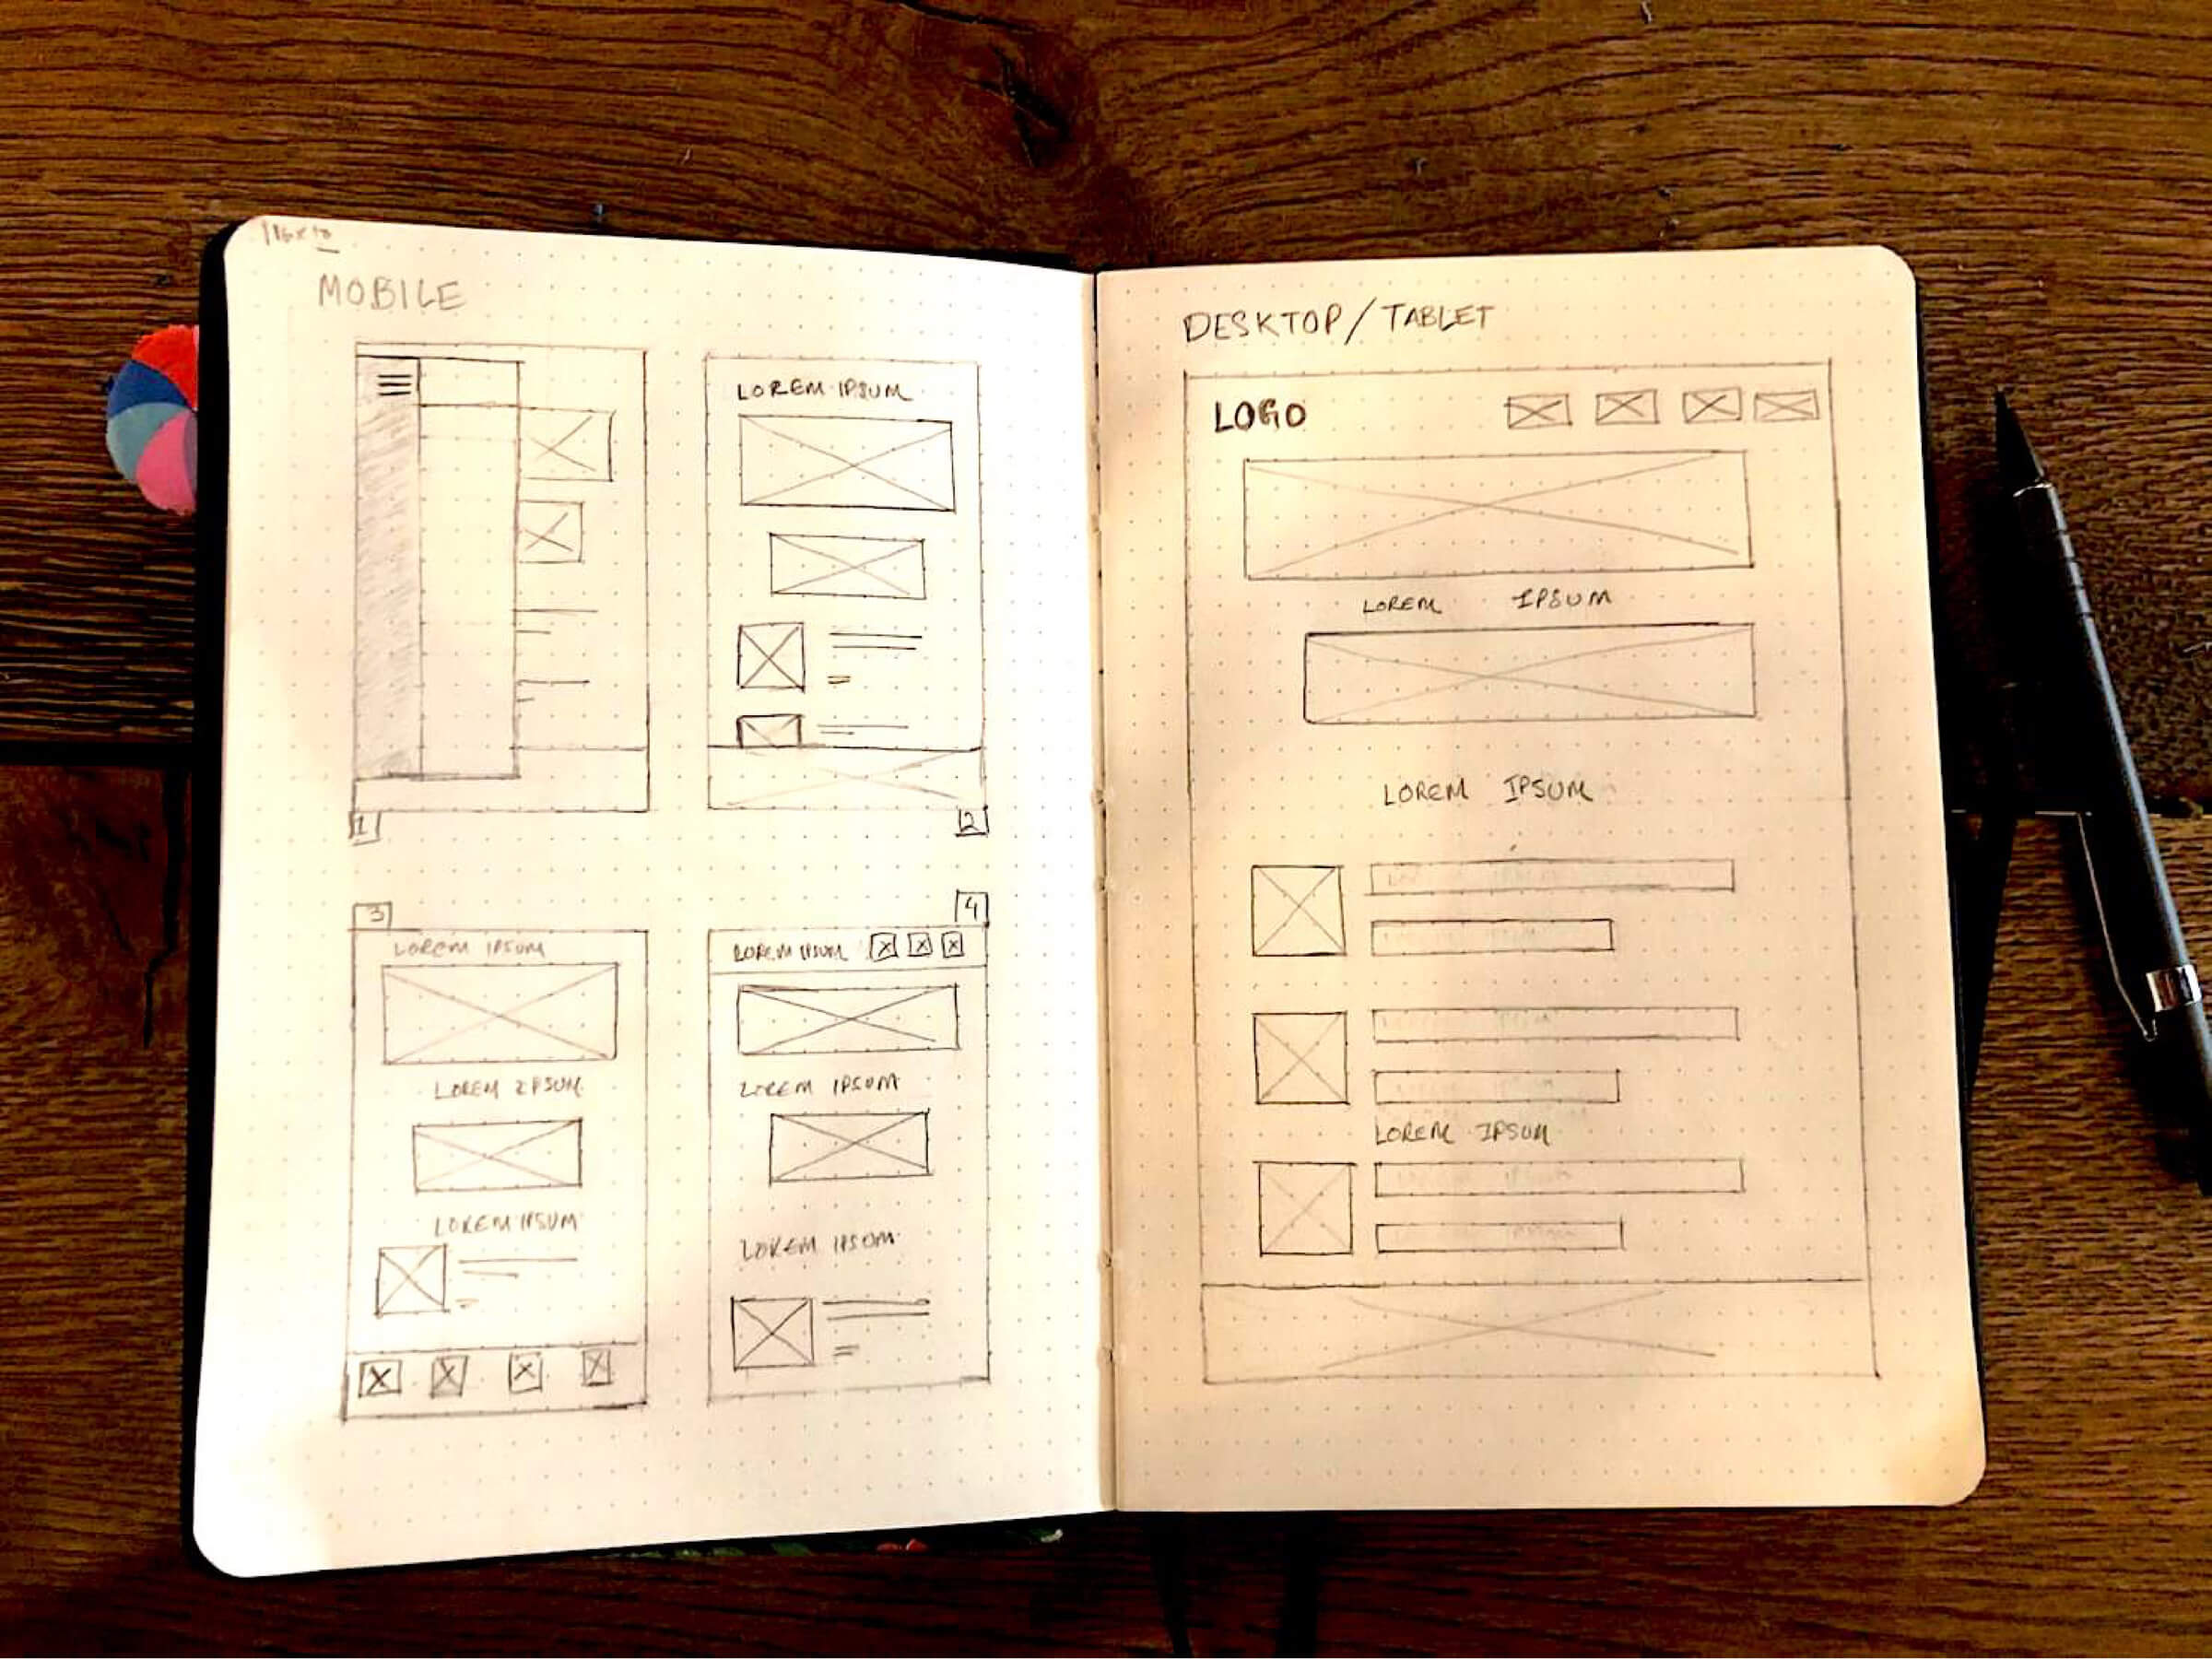 MOBILE
1
LOREM IPSUM
2
3
LOREM IPSUM
LOREM IPSUM
LOREM IPSUM
4
LOREM IPSUM
LOREM IPSUM
LOREM IPSUM
DESKTOP/TABLET
LOGO
LOREM IPSUM
LOREM IPSUM
LOREM IPSUM